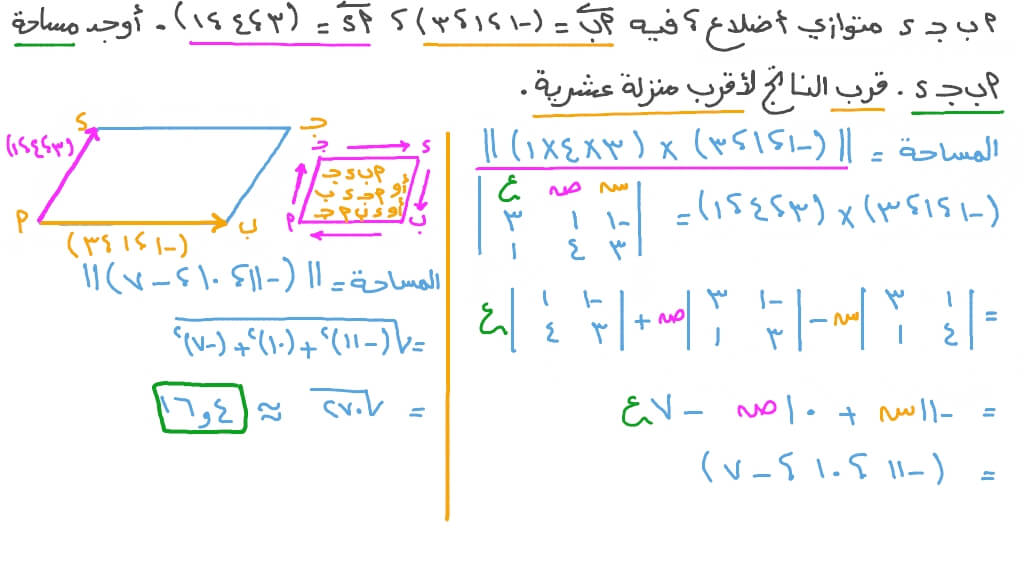 أ ب ج د متوازي أضلاع ؛ فيه أب = (-١ ، ١ ، ٣) ؛ أد = (٣ ، ٤ ، ١) . أوجد مساحة
أ ب ج د . قرب الناتج لأقرب منزلة عشرية .
المساحة = ||(-١ ، ١ ، ٣) × (٣×٤×١)||
(-١ ، ١ ، ٣) × (٣ ، ٤ ، ١) = | سـ صـ ع |
| -١ ١ ٣ |
| ٣ ٤ ١ |
= | ١ ٣ | سـ - | -١ ٣ | صـ + | -١ ١ | ع
| ٤ ١ | | ٣ ١ | | ٣ ٤ |
= -١١ سـ + ١٠ صـ - ٧ ع
= (-١١ ، ١٠ ، -٧)
د
ج
(٣ ، ٤ ، ١)
أ
ب
(-١ ، ١ ، ٣)
ج د
أ ب د ج
أو أ ج د ب
أو د ب أ ج
أ ب
المساحة = ||(-١١ ، ١٠ ، -٧)||
= √(-١١)² + (١٠)² + (-٧)²
= √٢٧٠ ≈ ١٦٫٤